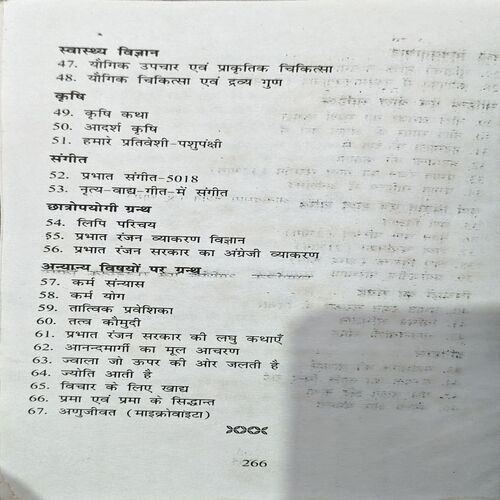 स्वास्थ्य विज्ञान
47. यौगिक उपचार एवं प्राकृतिक चिकित्सा
48. यौगिक चिकित्सा एवं द्रव्य गुण
कृषि
49. कृषि कथा
50. आदर्श कृषि
51. हमारे प्रतिवेशी-पशुपंक्षी
संगीत
52. प्रभात संगीत-5018
53. नृत्य-वाद्य-गीत-में संगीत
छात्रोपयोगी ग्रन्थ
54. लिपि परिचय
55. प्रभात रंजन व्याकरण विज्ञान
56. प्रभात रंजन सरकार का अंग्रेजी व्याकरण
अन्यान्य विषयों पर ग्रन्थ
57. कर्म संन्यास
58. कर्म योग
59. तात्विक प्रवेशिका
60. तत्व कौमुदी
61. प्रभात रंजन सरकार की लघु कथाएँ
62. आनन्दमार्गी का मूल आचरण
63. ज्वाला जो ऊपर की ओर जलती है
64. ज्योति आती है
65. विचार के लिए खाद्य
66. प्रमा एवं प्रमा के सिद्धान्त
67. अणुजीवत (माइक्रोवाइटा)
266